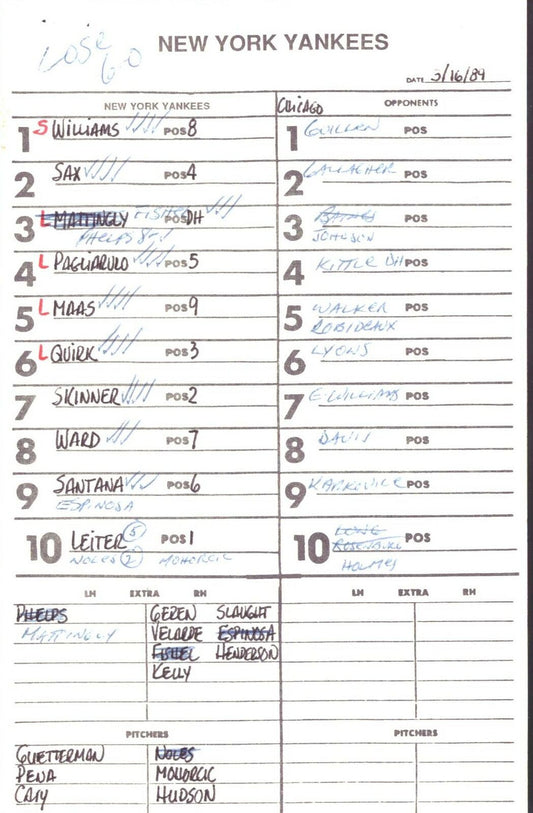 LOSE
6 0
NEW YORK YANKEES
DATE 3/16/89
NEW YORK YANKEES
CHICAGO OPPONENTS
1 S WILLIAMS POS 8
1 GUILLEN POS
2 SAX POS 4
2 GALLAGHER POS
3 L MATTINGLY FISHEL POS DH
PHELPS 8-
3 BAINES POS
JOHNSON
4 L PAGLIARULO POS 5
4 KITTLE DH POS
5 L MAAS POS 9
5 WALKER POS
ROBIDEAUX
6 L QUIRK POS 3
6 LYONS POS
7 SKINNER POS 2
7 E. WILLIAMS POS
8 WARD POS 7
8 DAVIS POS
9 SANTANA POS 6
ESPINOSA
9 KARKOVICE POS
10 LEITER (5) POS 1
NOLES (2) MOHORCIC
10 LONG POS
ROSENBERG
HOLMES
LH EXTRA RH
LH EXTRA RH
PHELPS GEREN SLAUGHT
MATTINGLY VELARDE ESPINOSA
FISHEL HENDERSON
KELLY
PITCHERS
PITCHERS
GUETTERMAN NOLES
PENA MOHORCIC
CARY HUDSON